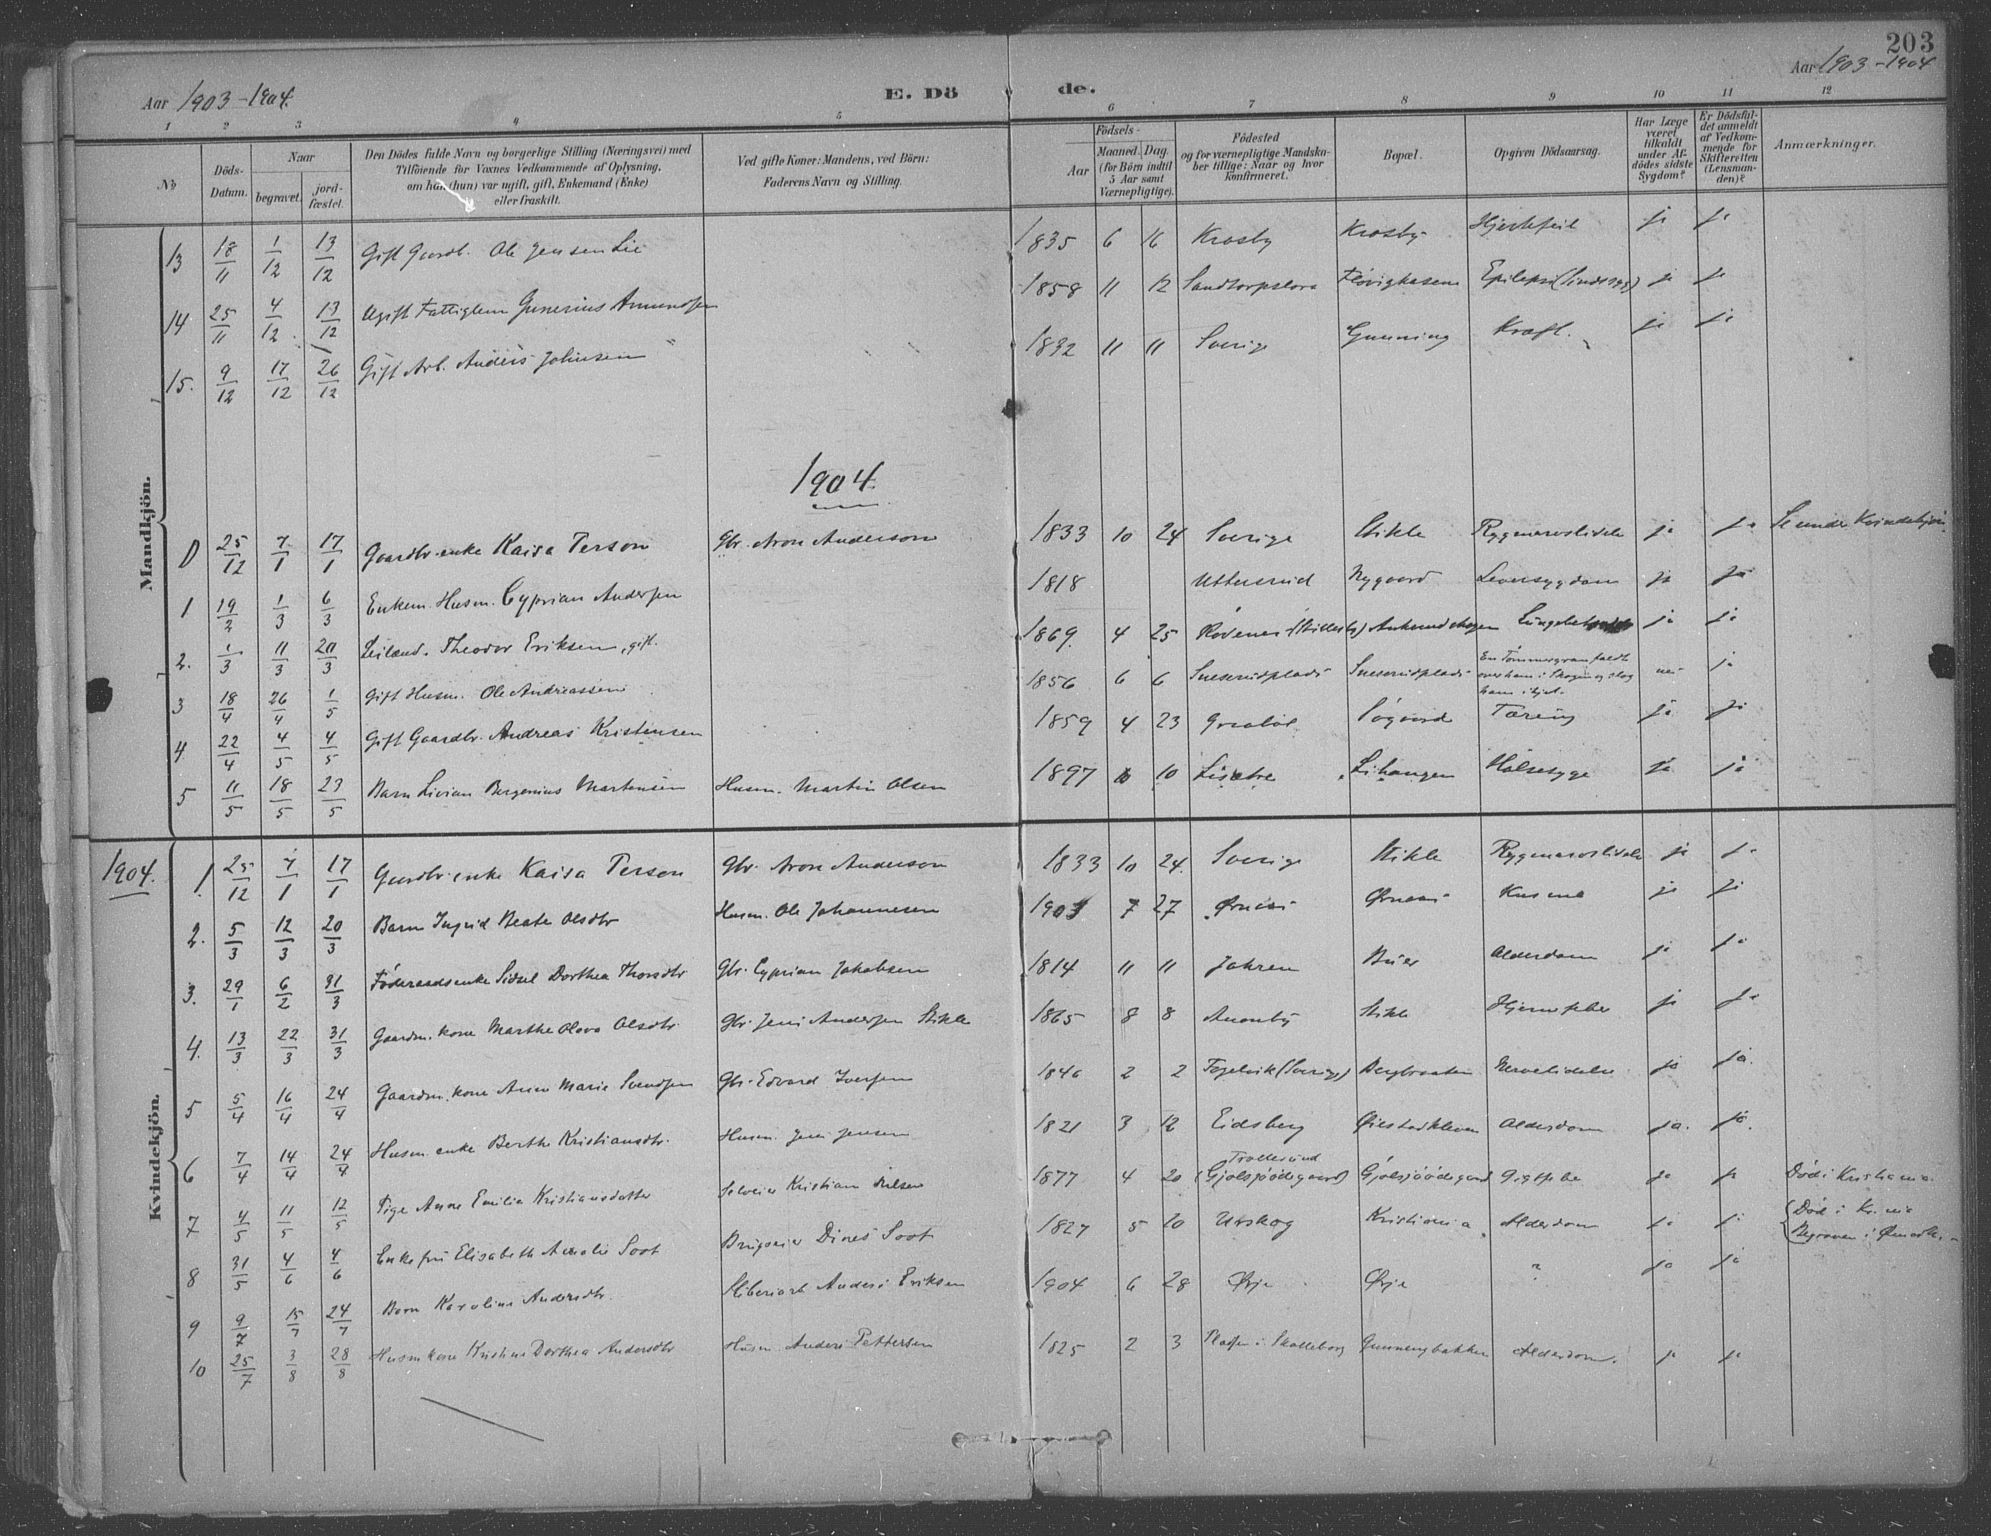 203
Aar 1903-1904. E. Dö de. Aar 1903-1904
1 2 3 4 5 6 7 8 9 10 11 12
No Döds-Datum. Naar begravet. jord-fæstet. Den Dödes fulde Navn og borgerlige Stilling (Næringsvei) med Tilföiende for Voxnes Vedkommende af Oplysning, om han (hun) var ugift, gift, Enkemand (Enke) eller fraskilt. Ved gifte Koner: Mandens, ved Börn: Faderens Navn og Stilling. Födsels- Aar Maaned. Dag. (for Börn indtil 5 Aar samt Værnepligtige). Födested og for værnepligtige Mandskaber tillige: Naar og hvor konfirmeret. Bopæl. Opgiven Dödsaarsag. Har Læge været tilkaldt under Afdödes sidste Sygdom? Er Dödsfaldet anmeldt af Vedkommende for Skifteretten (Lensmanden)? Anmærkninger.
Mandkjön.
13 18/11 1/12 13/12 Gift Gaardb. Ole Jensen Lie 1835 6 16 Krosby Krosby Hjertefeil ja ja
14 25/11 4/12 13/12 Ugift Fattiglem Gunerius Amundsen 1858 11 12 Epilepsi (Sindssyg) ja ja
15. 9/12 17/12 26/12 Gift Arb. Anders Johnsen 1832 11 11 Sverige Gunning Kræft. ja ja
1904.
0 25/12 7/1 17/1 Gaardbr. enke Kaisa Person Gbr. Aron Anderson 1833 10 24 Sverige Stikle Rygmarvslidelse ja ja Se under Kvindekjön.
1 19/2 1/3 6/3 Enkem. Husm. Cyprian Andersen 1818 Nygaard Leversygdom ja ja
2. 1/3 11/3 20/3 Leilænd. Theodor Eriksen, gift. 1869 4 25 ja ja
3 18/4 26/4 1/5 Gift Husm. Ole Andreassen 1856 6 6 En Tömmergran faldt over ham i Skogen og slog ham ihjel. nei ja
4. 22/4 4/5 4/5 Gift Gaardbr. Andreas Kristensen 1859 4 23 Tæring ja ja
5 11/5 18/5 23/5 Barn Livian Bergenius Martensen Husm. Martin Olsen 1897 10 Halsesyge ja ja
1904.
Kvindekjön.
1. 25/12 7/1 17/1 Gaardbr. enke Kaisa Person Gbr. Aron Anderson 1833 10 24 Sverige Stikle Rygmarvslidelse ja ja
2. 5/3 12/3 20/3 Barn Ingrid Beate Olsdtr Husm. Ole Johannesen 1903 7 27 ja ja
3. 29/1 6/2 31/3 Föderaadsenke Sidsel Dorthea Thorsdtr Gbr. Cyprian Jakobsen 1814 11 11 Jahren Buer Alderdom ja ja
4. 13/3 22/3 31/3 Gaardm. kone Marthe Olava Olsdtr. Gbr. Jens Andersen Stikle 1865 8 8 Stikle ja ja
5 5/4 16/4 24/4 Gaardm. kone Anne Marie Svendsen Gbr. Edvard Iversen 1846 2 2 Fogelvik (Sverige) Bergbraaten Nervelidelse ja ja.
6 7/4 14/4 24/4 Husm. enke Berthe Kristiansdtr. Husm. Jens Jensen 1821 3 12 Eidsberg Alderdom ja. ja.
7 4/5 11/5 12/5 Pige Anne Emilie Kristiansdatter Selveier Kristian Nilsen 1877 4 20 Trollerud (Gjølsjöödegaard) Gjølsjöödegaard Gigtfeber ja ja Död i Kristiania
8 31/5 4/6 4/6 Enkefru Elisabeth Amalie Soot Brigader Dines Soot 1827 5 10 Urskog Kristiania Alderdom ja ja Död i Kr.nia Begraven i
9 9/7 15/7 24/7 Barn Karoline Andersdtr. Sliberiarb Anders Eriksen 1904 6 28 Ørje Ørje ? ja ja
10 25/7 3/8 28/8 Husm kone Kristine Dorthea Andersdtr Husm. Anders Pettersen 1825 2 3 Gunnengbakken Alderdom. ja ja